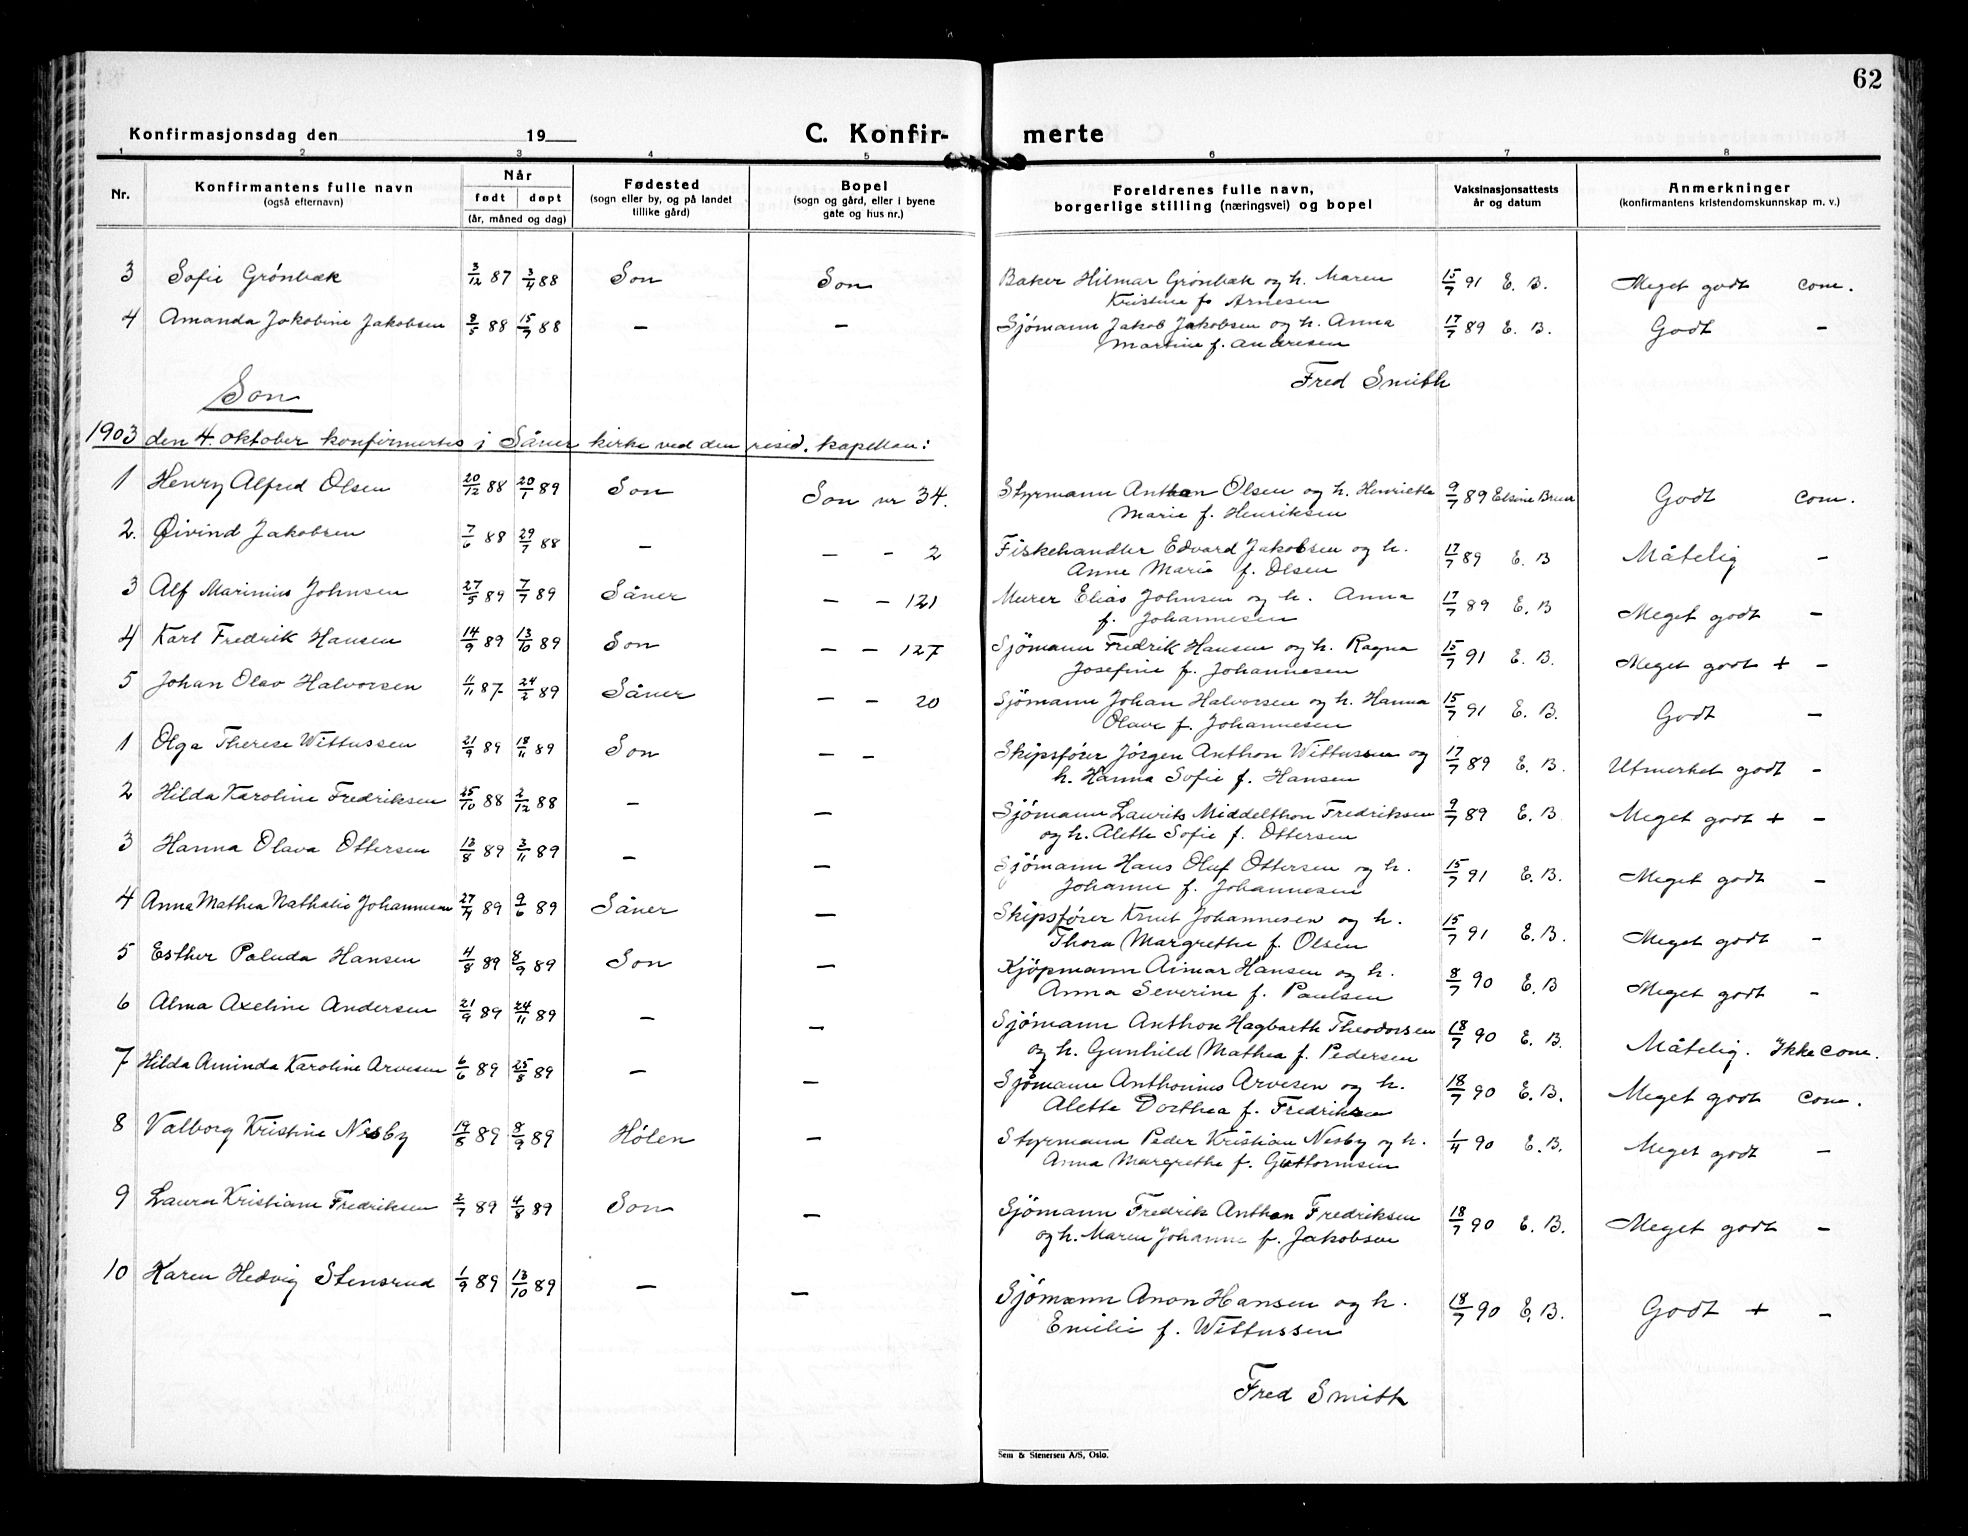 62
Konfirmasjonsdag den 19 C. Konfir- merte
1 2 3 4 5 6 7 8
Nr. Konfirmantens fulle navn (også efternavn) Når født døpt (år, måned og dag) Fødested (sogn eller by, og på landet tillike gård) Bopel (sogn og gård, eller i byene gate og hus nr.) Foreldrenes fulle navn, borgerlige stilling (næringsvei) og bopel Vaksinasjonsattests år og datum Anmerkninger (konfirmantens kristendomskunnskap m. v.)
3 Sofie Grönbæk 3/12 87 3/4 88 Son Son Baker Hilmar Grönbæk og h. Maren 15/7 91 E. B. Meget godt com.
Kristine fo Arnesen
4 Amanda Jakobine Jakobsen 8/5 88 15/7 88 – – Sjömann Jakob Jakobsen og h. Anna 17/7 89 E. B. Godt –
Martine f. Andresen
Fred Smith
Son
1903 den 4. oktober konfirmertes i Såner kirke ved den resid. kapellan:
1 Henry Alfred Olsen 20/12 88 20/1 89 Son Son nr 34. Styrmann Anthon Olsen og h. Henriette 9/7 89 Elsine Bruer Godt com.
Marie f. Henriksen
2. Øivind Jakobsen 7/6 88 29/7 88 – – - 2 Fiskehandler Edvard Jakobsen og h. 17/7 89 E. B Måtelig –
Anne Marie f. Olsen
3 Alf Marinius Johnsen 27/5 89 7/7 89 Såner – – 121 Murer Elias Johnsen og h. Anna 17/7 89 E. B Meget godt –
f. Johannesen
4 Karl Fredrik Hansen 14/9 89 13/10 89 Son – – 127 Sjömann Fredrik Hansen og h. Ragna 15/7 91 E. B. Meget godt + –
Josefine f. Johannesen
5 Johan Olav Halvorsen 11/11 87 24/2 89 Såner – – 20 Sjömann Johan Halvorsen og h. Hanna 15/7 91 E. B. Godt –
Olave f. Johannesen
1 Olga Therese Wittussen 21/9 89 18/11 89 Son – – Skipsfører Jörgen Anthon Wittussen og 17/7 89 E. B. Utmerket godt –
h. Hanna Sofie f. Hansen
2 Hilda Karoline Fredriksen 25/10 88 2/12 88 – – Sjömann Laurits Middelthon Fredriksen 9/7 89 E. B Meget godt + –
og h. Alette Sofie f. Ottersen
3 Hanna Olava Ottersen 13/8 89 3/11 89 – – Sjömann Hans Oluf Ottersen og h. 15/7 91 E. B. Meget godt –
Johanne f. Johannesen
4 Anna Mathea Nathalie Johannesen 27/4 89 9/6 89 Såner – Skipsfører Knut Johannesen og h. 15/7 91 E. B. Meget godt –
Thora Margrethe f. Olsen
5 Esther Paluda Hansen 4/8 89 8/9 89 Son – Kjöpmann Aimar Hansen og h. 8/7 90 E. B Meget godt –
Anna Severine f. Paulsen
6 Alma Axeline Andersen 21/9 89 24/11 89 – – Sjömann Anthon Hagbarth Theodorsen 18/7 90 E. B. Måtelig. Ikke com.
og h. Gunhild Mathea f. Pedersen
7 Hilda Aminda Karoline Arvesen 6/6 89 25/8 89 – – Sjömann Anthonius Arvesen og h. 18/7 90 E. B. Meget godt com.
Alette Dorthea f. Fredriksen
8 Valborg Kristine Nesby 19/8 89 8/9 89 Hölen – Styrmann Peder Kristian Nesby og h. 1/4 90 E. B. Meget godt –
Anna Margrethe f. Guttormsen
9 Laura Kristiane Fredriksen 2/7 89 4/8 89 Son – Sjömann Fredrik Anthon Fredriksen 18/7 90 E. B. Meget godt –
og h. Maren Johanne f. Jakobsen
10 Karen Hedvig Stensrud 1/9 89 13/10 89 – – Sjömann Anon Hansen og h. 18/7 90 E. B. Godt + –
Emilie f. Wittussen
Fred Smith
Sem & Stenersen A/S, Oslo.